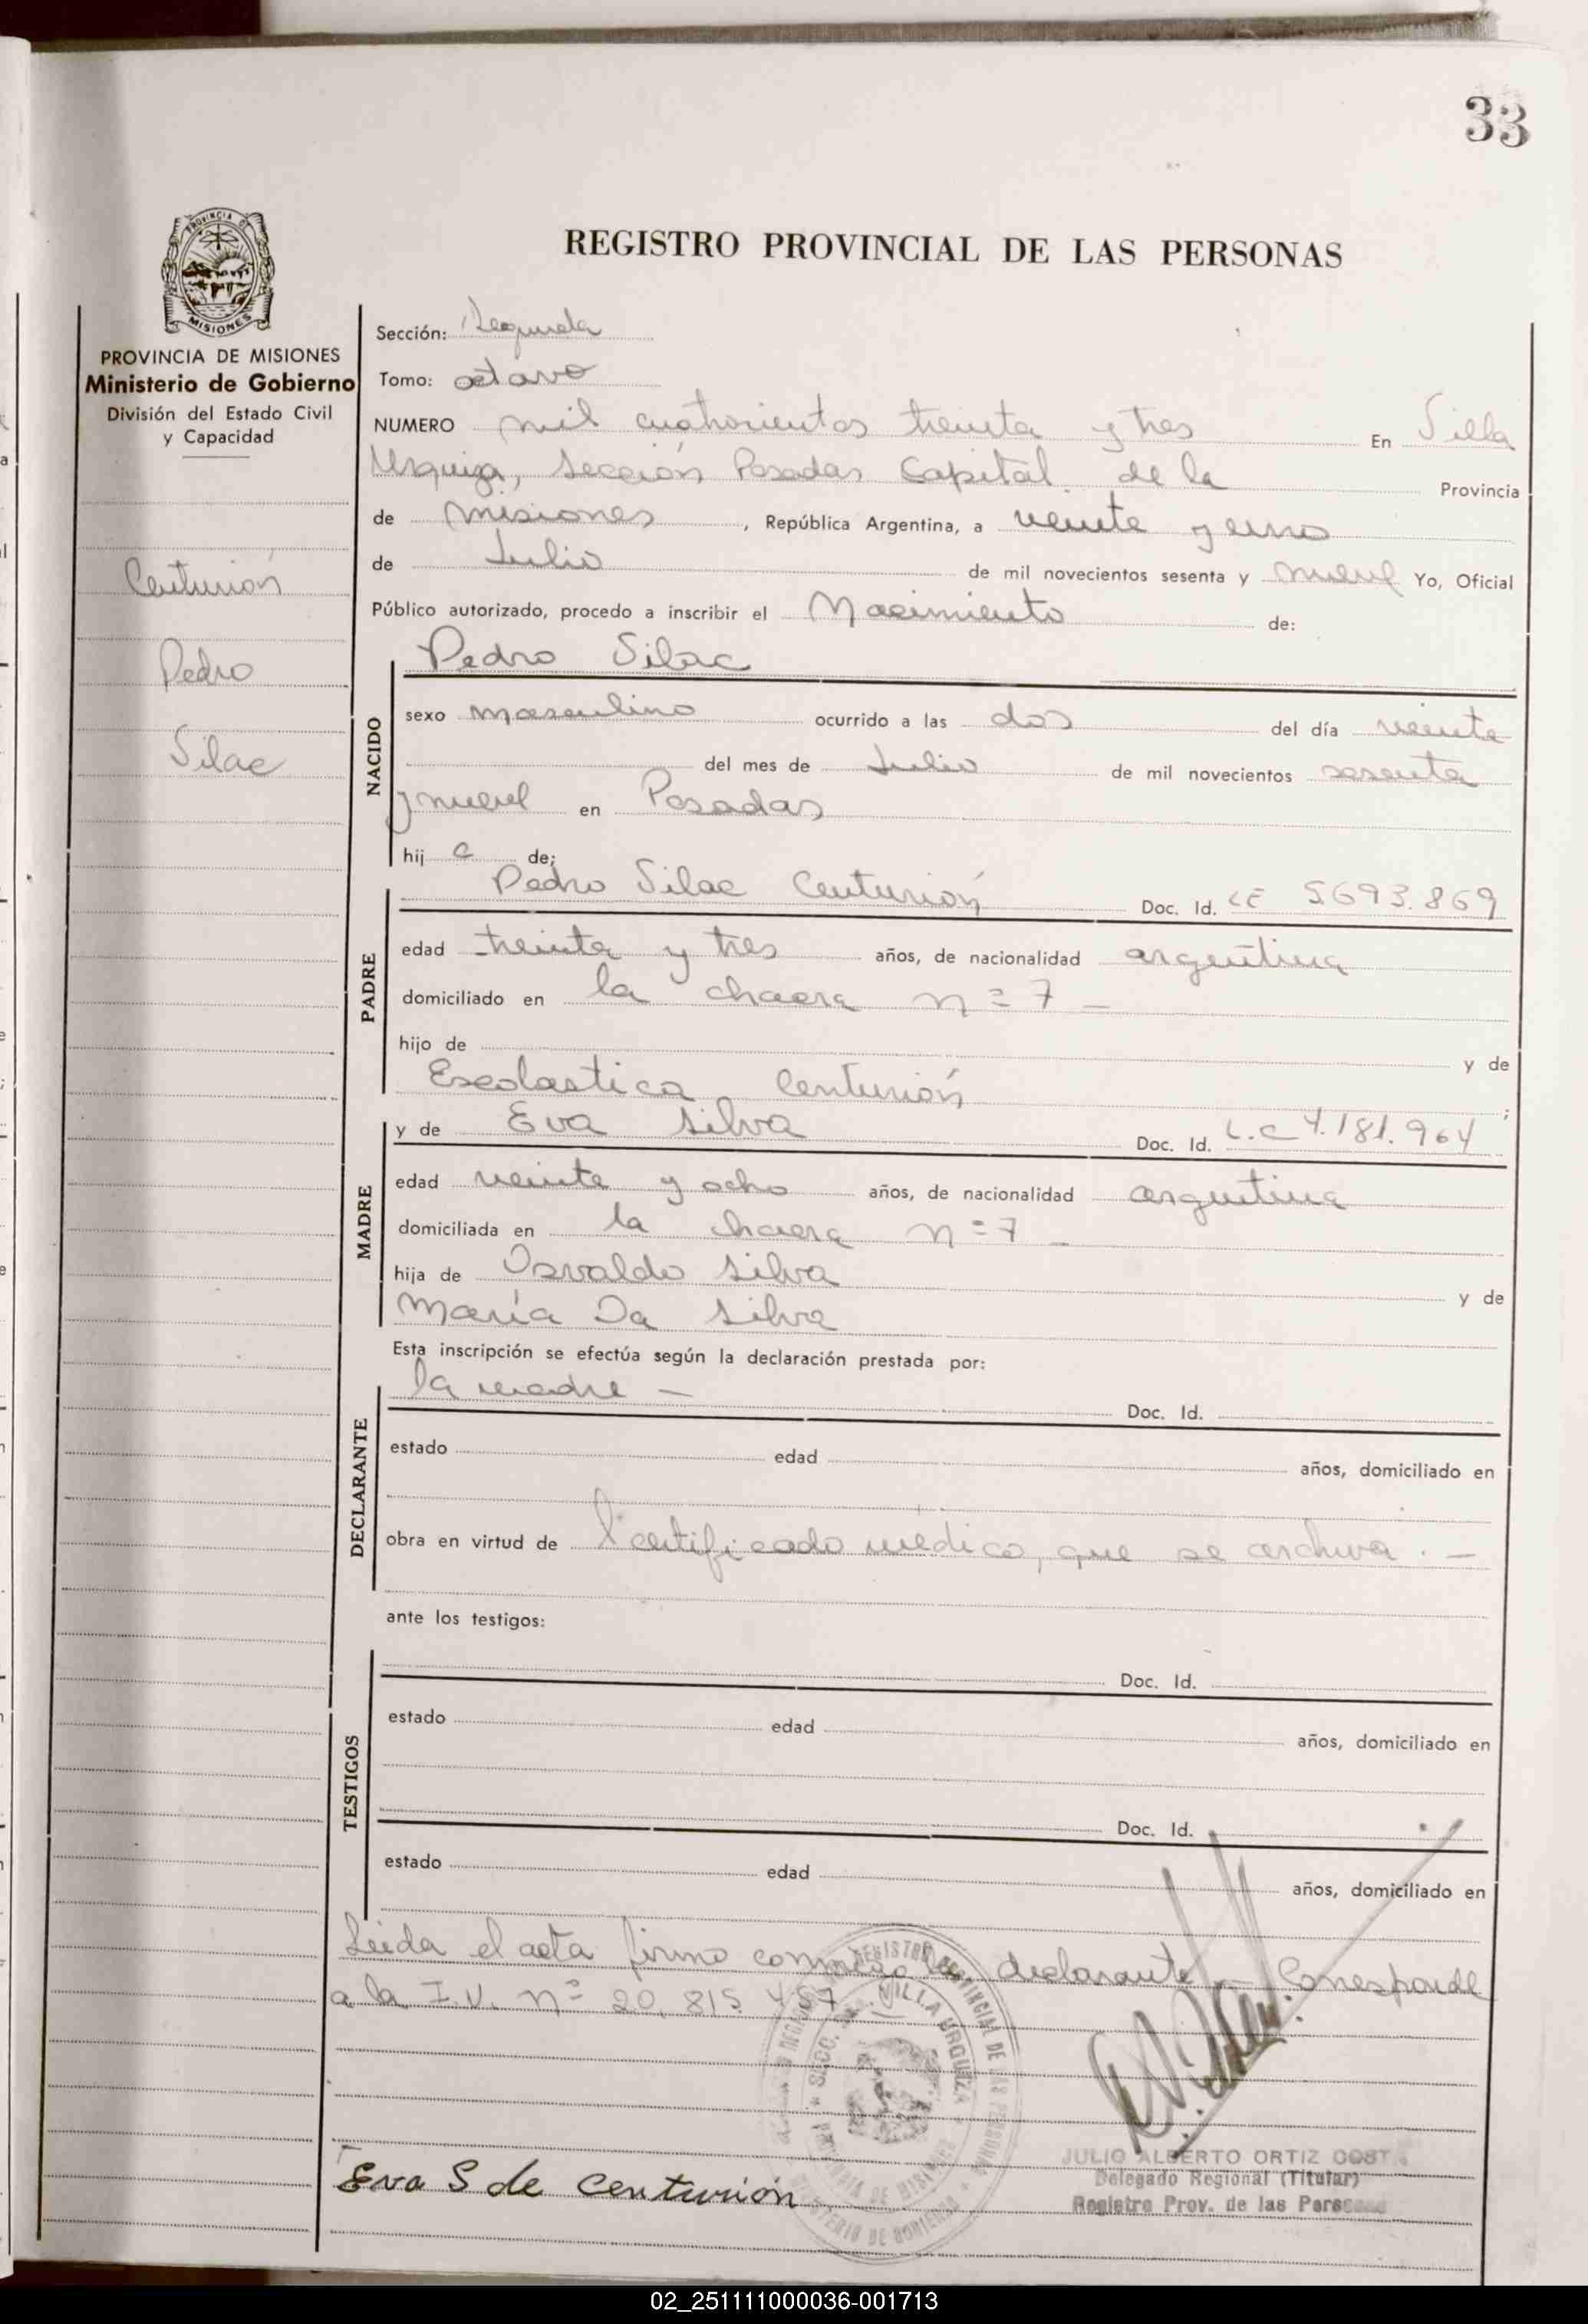 33
REGISTRO PROVINCIAL DE LAS PERSONAS
PROVINCIA DE
MISIONES
PROVINCIA DE MISIONES
Ministerio de Gobierno
División del Estado Civil
y Capacidad
Centurión
Pedro
Silac
Sección: Segunda
Tomo: octavo
NUMERO mil cuatrocientos treinta y tres En Villa
Urquiza, Sección Posadas Capital de la Provincia
de Misiones, República Argentina, a veinte y uno
de Julio de mil novecientos sesenta y nueve Yo, Oficial
Público autorizado, procedo a inscribir el Nacimiento de:
Pedro Silac
NACIDO
sexo masculino ocurrido a las dos del día veinte
del mes de Julio de mil novecientos sesenta
y nueve en Posadas
hij o de;
Pedro Silac Centurión Doc. Id. 5.693.869
PADRE
edad treinta y tres años, de nacionalidad argentina
domiciliado en la chacra n= 7 —
hijo de y de
Escolastica Centurión ;
y de Eva Silva Doc. Id. L.C 4.181.964
MADRE
edad veinte y ocho años, de nacionalidad argentina
domiciliada en la chacra n=7 —
hija de Osvaldo Silva y de
María Da Silva
Esta inscripción se efectúa según la declaración prestada por:
la madre — Doc. Id.
DECLARANTE
estado edad años, domiciliado en
obra en virtud de certificado médico, que se archiva . —
ante los testigos:
Doc. Id.
TESTIGOS
estado edad años, domiciliado en
Doc. Id.
estado edad años, domiciliado en
Leida el acta firma conmigo la declarante — Corresponde
a la I.U. n= 20.815.457
REGISTRO PROVINCIAL DE LAS PERSONAS
VILLA URQUIZA
MINISTERIO DE GOBIERNO
Eva S de Centurión
JULIO ALBERTO ORTIZ COSTA
Delegado Regional (Titular)
Registro Prov. de las Personas
02_251111000036-001713